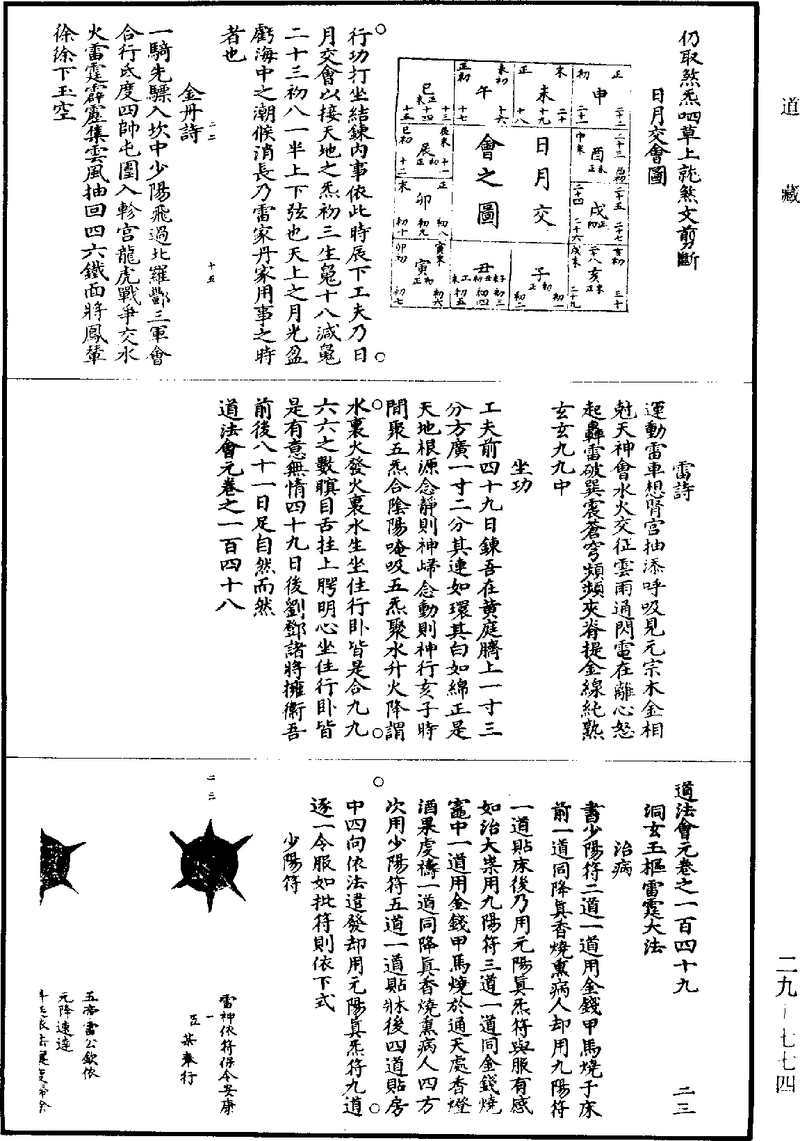 道藏
仍取煞炁呬草上訖煞文剪斷
日月交會圖
日月交
會之圖
申
未
午
巳
辰
卯
寅
丑
子
亥
戌
酉
行功打坐結鍊內事依此時辰下工夫乃日
月交會以接天地之炁初三生魂十八減魂
二十三初八一半上下弦也天上之月光盈
虧海中之潮候消長乃雷家丹家用事之時
者也
金丹詩
一騎先驃入坎中少陽飛過北羅酆三軍會
合行氐度四帥屯圍入軫宮龍虎戰爭交水
火雷霆霹靂集雲風抽回四六鐵面將鳳輦
徐徐下玉空
雷詩
運動雷車想腎宮抽添呼吸見元宗木金相
尅天神會水火交征雲雨通閃電在離心怒
起轟雷破巽震蒼穹頻頻夾脊提金線純熟
玄玄九九中
坐功
工夫前四十九日鍊吾在黃庭臍上一寸三
分方廣一寸二分其連如環其白如綿正是
天地根源念靜則神歸念動則神行亥子時
間聚五炁合陰陽唵吸五炁聚水升火降謂
水裏火發火裏水生坐住行卧皆是合九九
六六之數瞑目舌拄上腭明心坐住行卧皆
是有意無情四十九日後劉鄧諸將擁衛吾
前後八十一日足自然而然
道法會元卷之一百四十八
道法會元卷之一百四十九 二三
洞玄玉樞雷霆大法
治病
書少陽符二道一道用金錢甲馬燒于床
前一道同降真香燒熏病人却用九陽符
一道貼床後乃用元陽真炁符與服有感
如治大祟用九陽符三道一道同金錢燒
竈中一道用金錢甲馬燒於通天處香燈
酒果虔禱一道同降真香燒熏病人四方
次用少陽符五道一道貼牀後四道貼房
中四向依法遣發却用元陽真炁符九道
逐一令服如批符則依下式
少陽符
雷神依符保令安康
臣某奉行
五帝雷公欽依
元降速達
二九—七七四